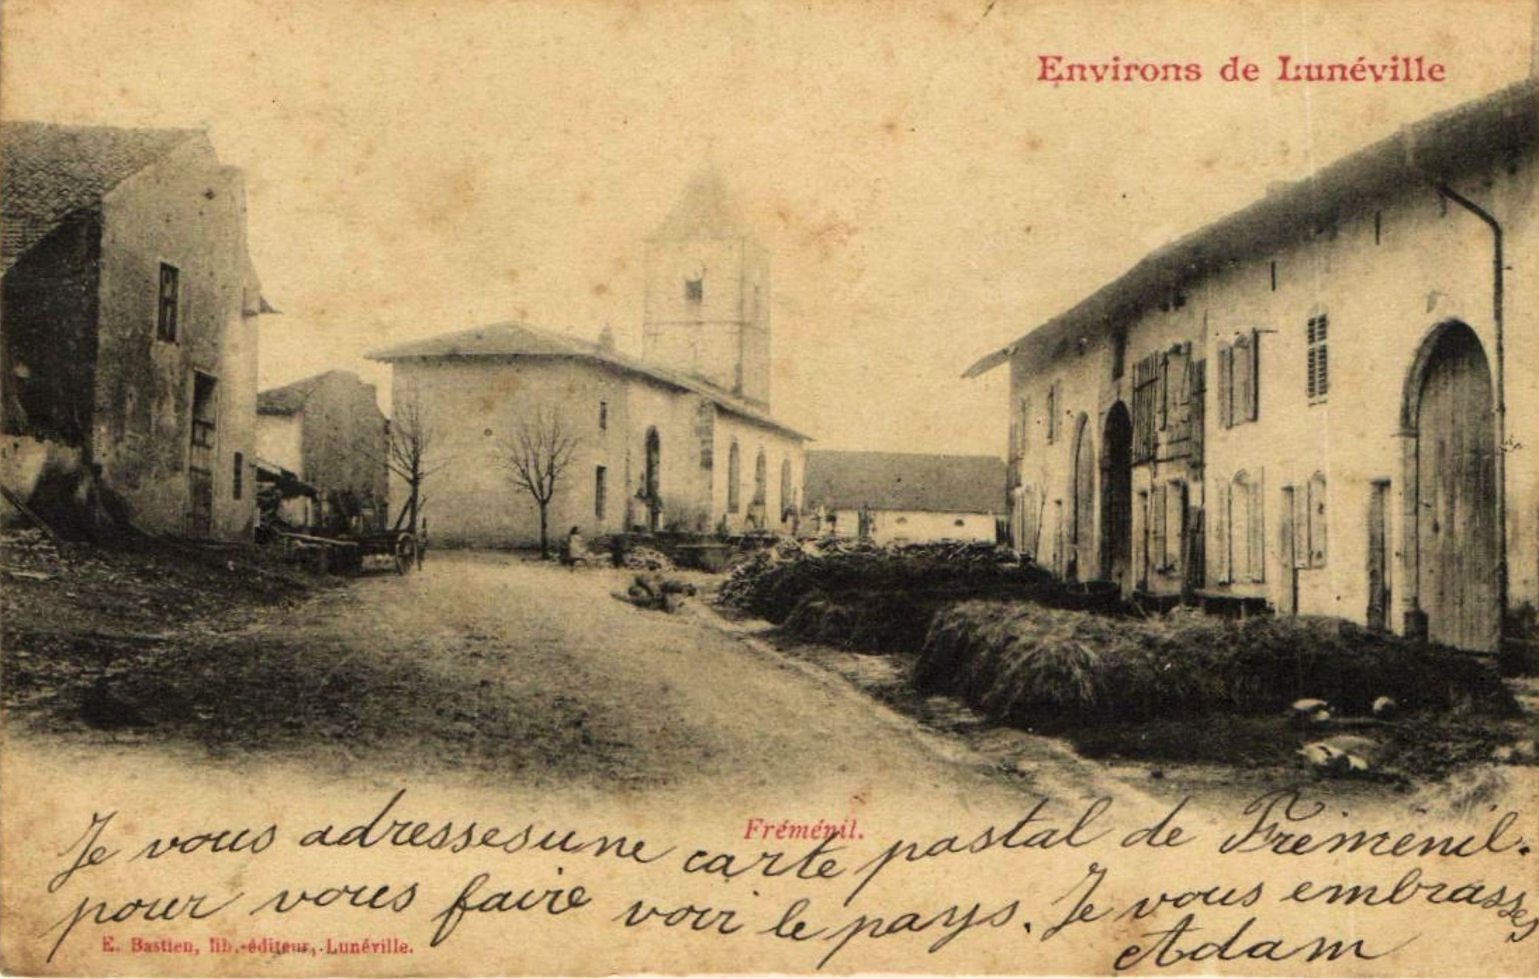 Environs de Lunéville
Fréménil.
Je vous adressesune carte pastal de Fréménil.
pour vous faire voir le pays. Je vous embrasses
Adam
E. Bastien, lib.-éditeur, Lunéville.